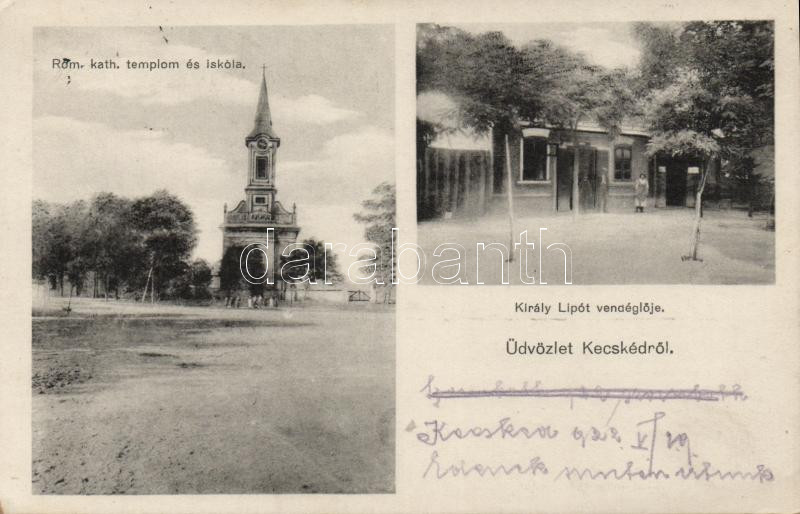 Róm. kath. templom és iskola.
darabanth
Király Lipót vendéglője.
Üdvözlet Kecskédről.
Kecsked 922 V/19